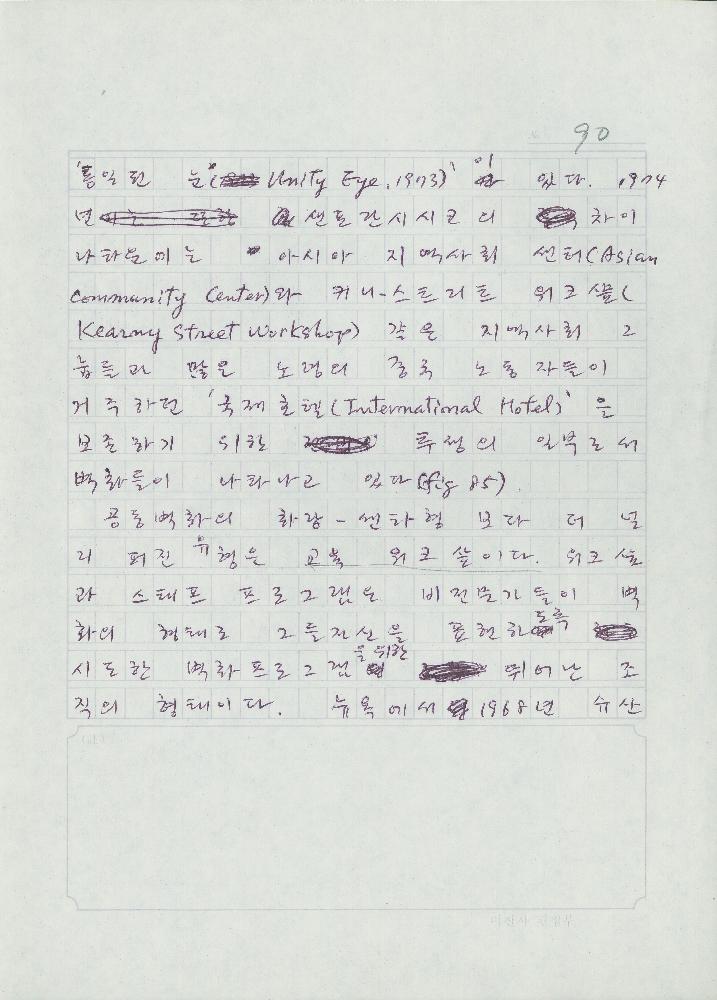 90
'통일된 눈(Unity Eye, 1973)'이 있다. 1974
년 샌프란시시코의 차이
나타운에는 아시아 지역사회 센터(Asian
Community Center)와 커니-스트리트 워크샾(
Kearny Street Workshop) 같은 지역사회 그
룹들과 많은 노령의 중국 노동자들이
거주하던 '국제호텔(International Hotel)'을
보존하기 위한 투쟁의 일부로서
벽화들이 나타나고 있다(fig 85).
공동벽화의 화랑-센타형 보다 더 널
리 퍼진 유형은 교육 워크샾이다. 워크샾
과 스태프 프로그램은 비전문가들이 벽
화의 형태로 그들자신을 표현하도록
시도한 벽화프로그램을 위한 뛰어난 조
직의 형태이다. 뉴욕에서 1968년 수산